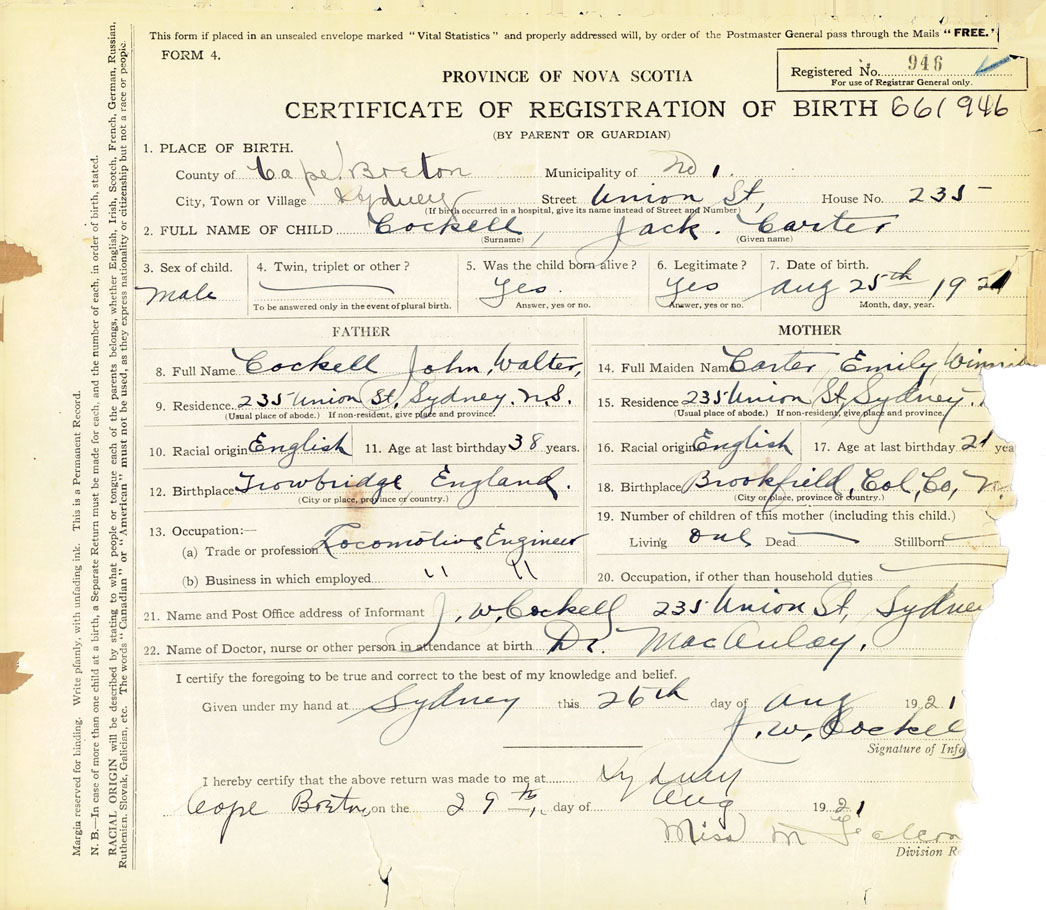 This form if placed in an unsealed envelope marked "Vital Statistics" and properly addressed will, by order of the Postmaster General pass through the Mails "FREE."
FORM 4.
Registered No. 946
For use of Registrar General only.
PROVINCE OF NOVA SCOTIA
CERTIFICATE OF REGISTRATION OF BIRTH 661946
(BY PARENT OR GUARDIAN)
1. PLACE OF BIRTH.
County of Cape Breton Municipality of No 1.
City, Town or Village Sydney Street Union St, House No. 235
(If birth occurred in a hospital, give its name instead of Street and Number)
2. FULL NAME OF CHILD Cockell, Jack. Carter
(Surname) (Given name)
3. Sex of child. 4. Twin, triplet or other? 5. Was the child born alive? 6. Legitimate? 7. Date of birth.
Male Yes. Yes Aug 25th 1921
To be answered only in the event of plural birth. Answer, yes or no. Answer, yes or no. Month, day, year.
FATHER MOTHER
8. Full Name Cockell John, Walter, 14. Full Maiden Nam Carter Emily, Winni
9. Residence 235 Union St, Sydney. N.S. 15. Residence 235 Union St, Sydney.
(Usual place of abode.) If non-resident, give place and province. (Usual place of abode.) If non-resident, give place and province.
10. Racial origin English 11. Age at last birthday 38 years. 16. Racial origin English 17. Age at last birthday 21 yea
12. Birthplace Trowbridge, England. 18. Birthplace Brookfield, Col, Co, N.
(City or place, province or country.) (City or place, province or country.)
13. Occupation:— 19. Number of children of this mother (including this child.)
(a) Trade or profession Locomotive Engineer Living one Dead Stillborn
(b) Business in which employed " " 20. Occupation, if other than household duties
21. Name and Post Office address of Informant J. W. Cockell 235 Union St, Sydney
22. Name of Doctor, nurse or other person in attendance at birth Dr. MacAulay.
I certify the foregoing to be true and correct to the best of my knowledge and belief.
Given under my hand at Sydney this 26th day of Aug 1921
J. W. Cockell
Signature of Info
I hereby certify that the above return was made to me at Sydney
Cape Breton on the 29th, day of Aug 1921
Miss M
Division R
Margin reserved for binding. Write plainly, with unfading ink. This is a Permanent Record.
N. B.—In case of more than one child at a birth, a Separate Return must be made for each, and the number of each, in order of birth, stated.
RACIAL ORIGIN will be described by stating to what people or tongue each of the parents belongs, whether English, Irish, Scotch, French, German, Russian,
Ruthenian, Slovak, Galician, etc. The words "Canadian" or "American" must not be used, as they express nationality or citizenship but not a race or people.